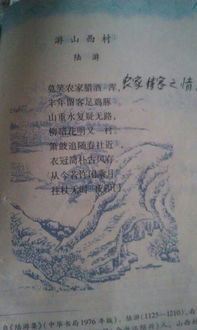 游山西村
陆游
莫笑农家腊酒浑，
丰年留客足鸡豚。
山重水复疑无路，
柳暗花明又一村。
箫鼓追随春社近，
衣冠简朴古风存。
从今若许闲乘月，
拄杖无时夜叩门。
农家待客之情
《陆游集》(中华书局1976年版)。陆游(1125—1210)，
山西村